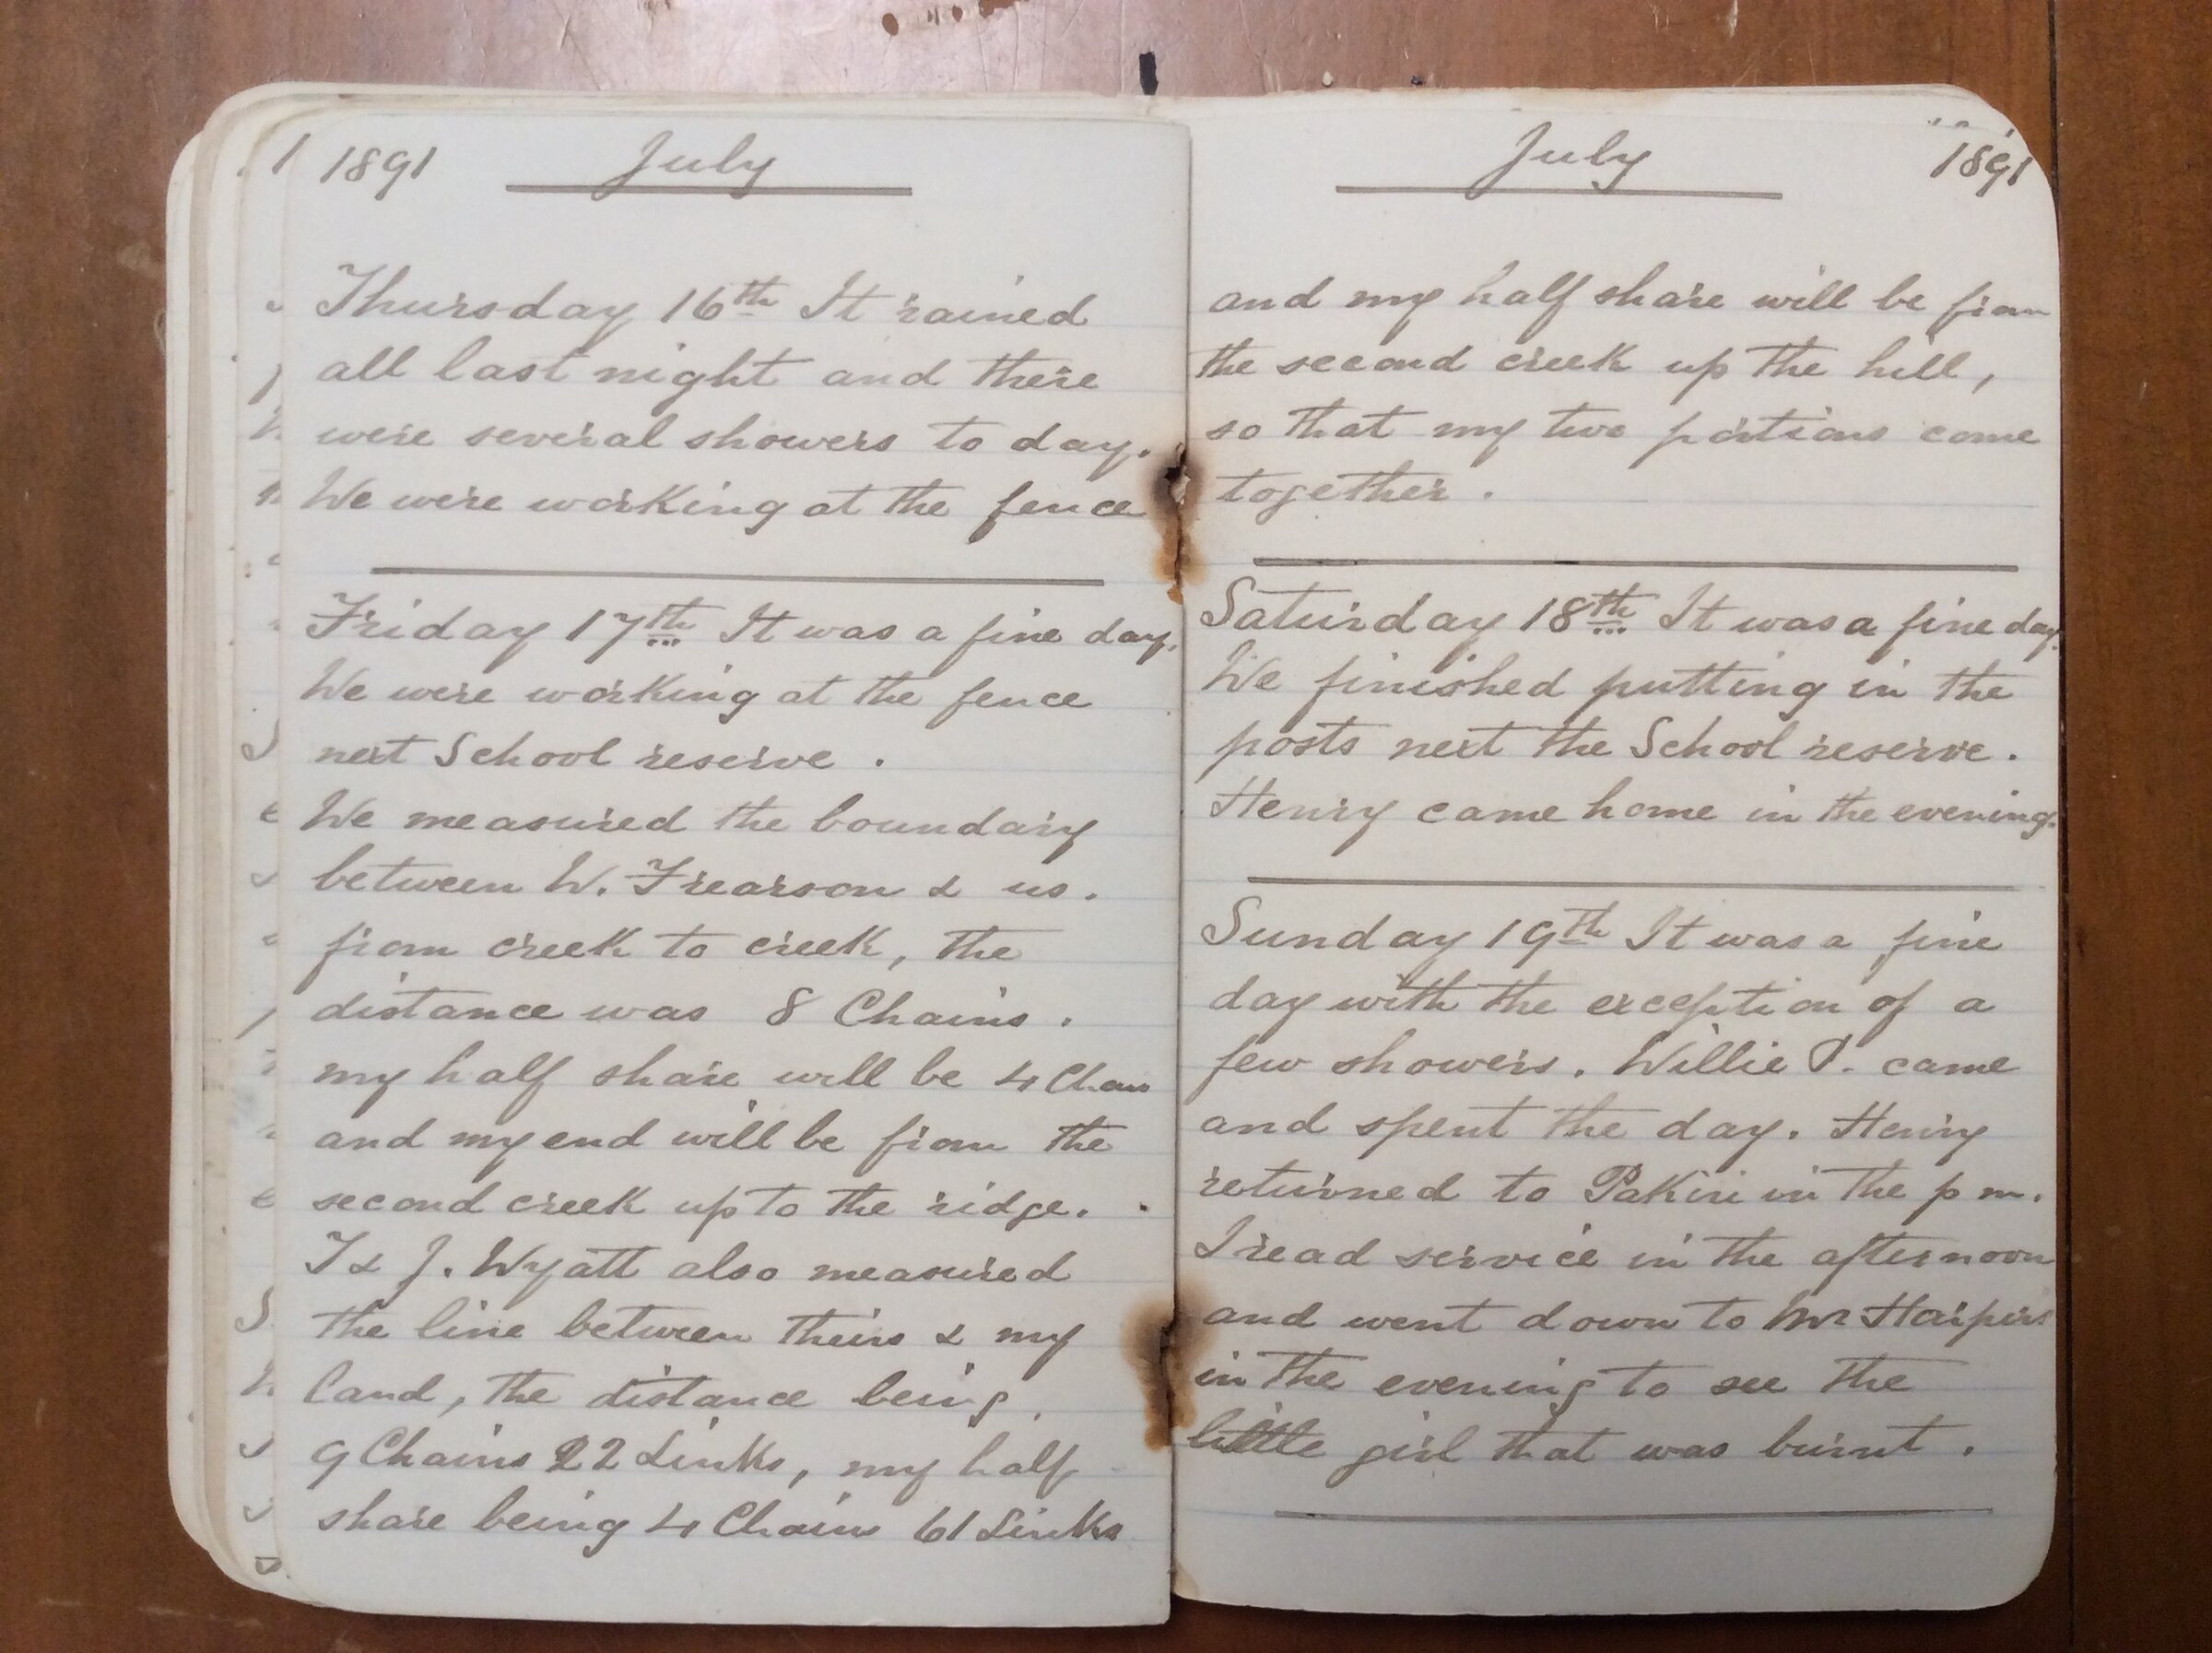 1891 July
Thursday 16th It rained
all last night and there
were several showers to day.
We were working at the fence
Friday 17th It was a fine day.
We were working at the fence
next School reserve.
We measured the boundary
between W. Frearson & us.
from creek to creek, the
distance was 8 Chains.
my half share will be 4 Chans
and my end will be from the
second creek up to the ridge.
I & J. Wyatt also measured
the line between theirs & my
land, the distance being,
9 Chains 22 Links, my half
share being 4 Chain 61 Links
July 1891
and my half share will be from
the second creek up the hill,
so that my two portions come
together.
Saturday 18th It was a fine day.
We finished putting in the
posts next the School reserve.
Henry came home in the evening.
Sunday 19th It was a fine
day with the exception of a
few showers. Willie P. came
and spent the day. Henry
returned to Pakiri in the p m.
I read service in the afternoon
and went down to Mr Harpers
in the evening to see the
little girl that was burnt.